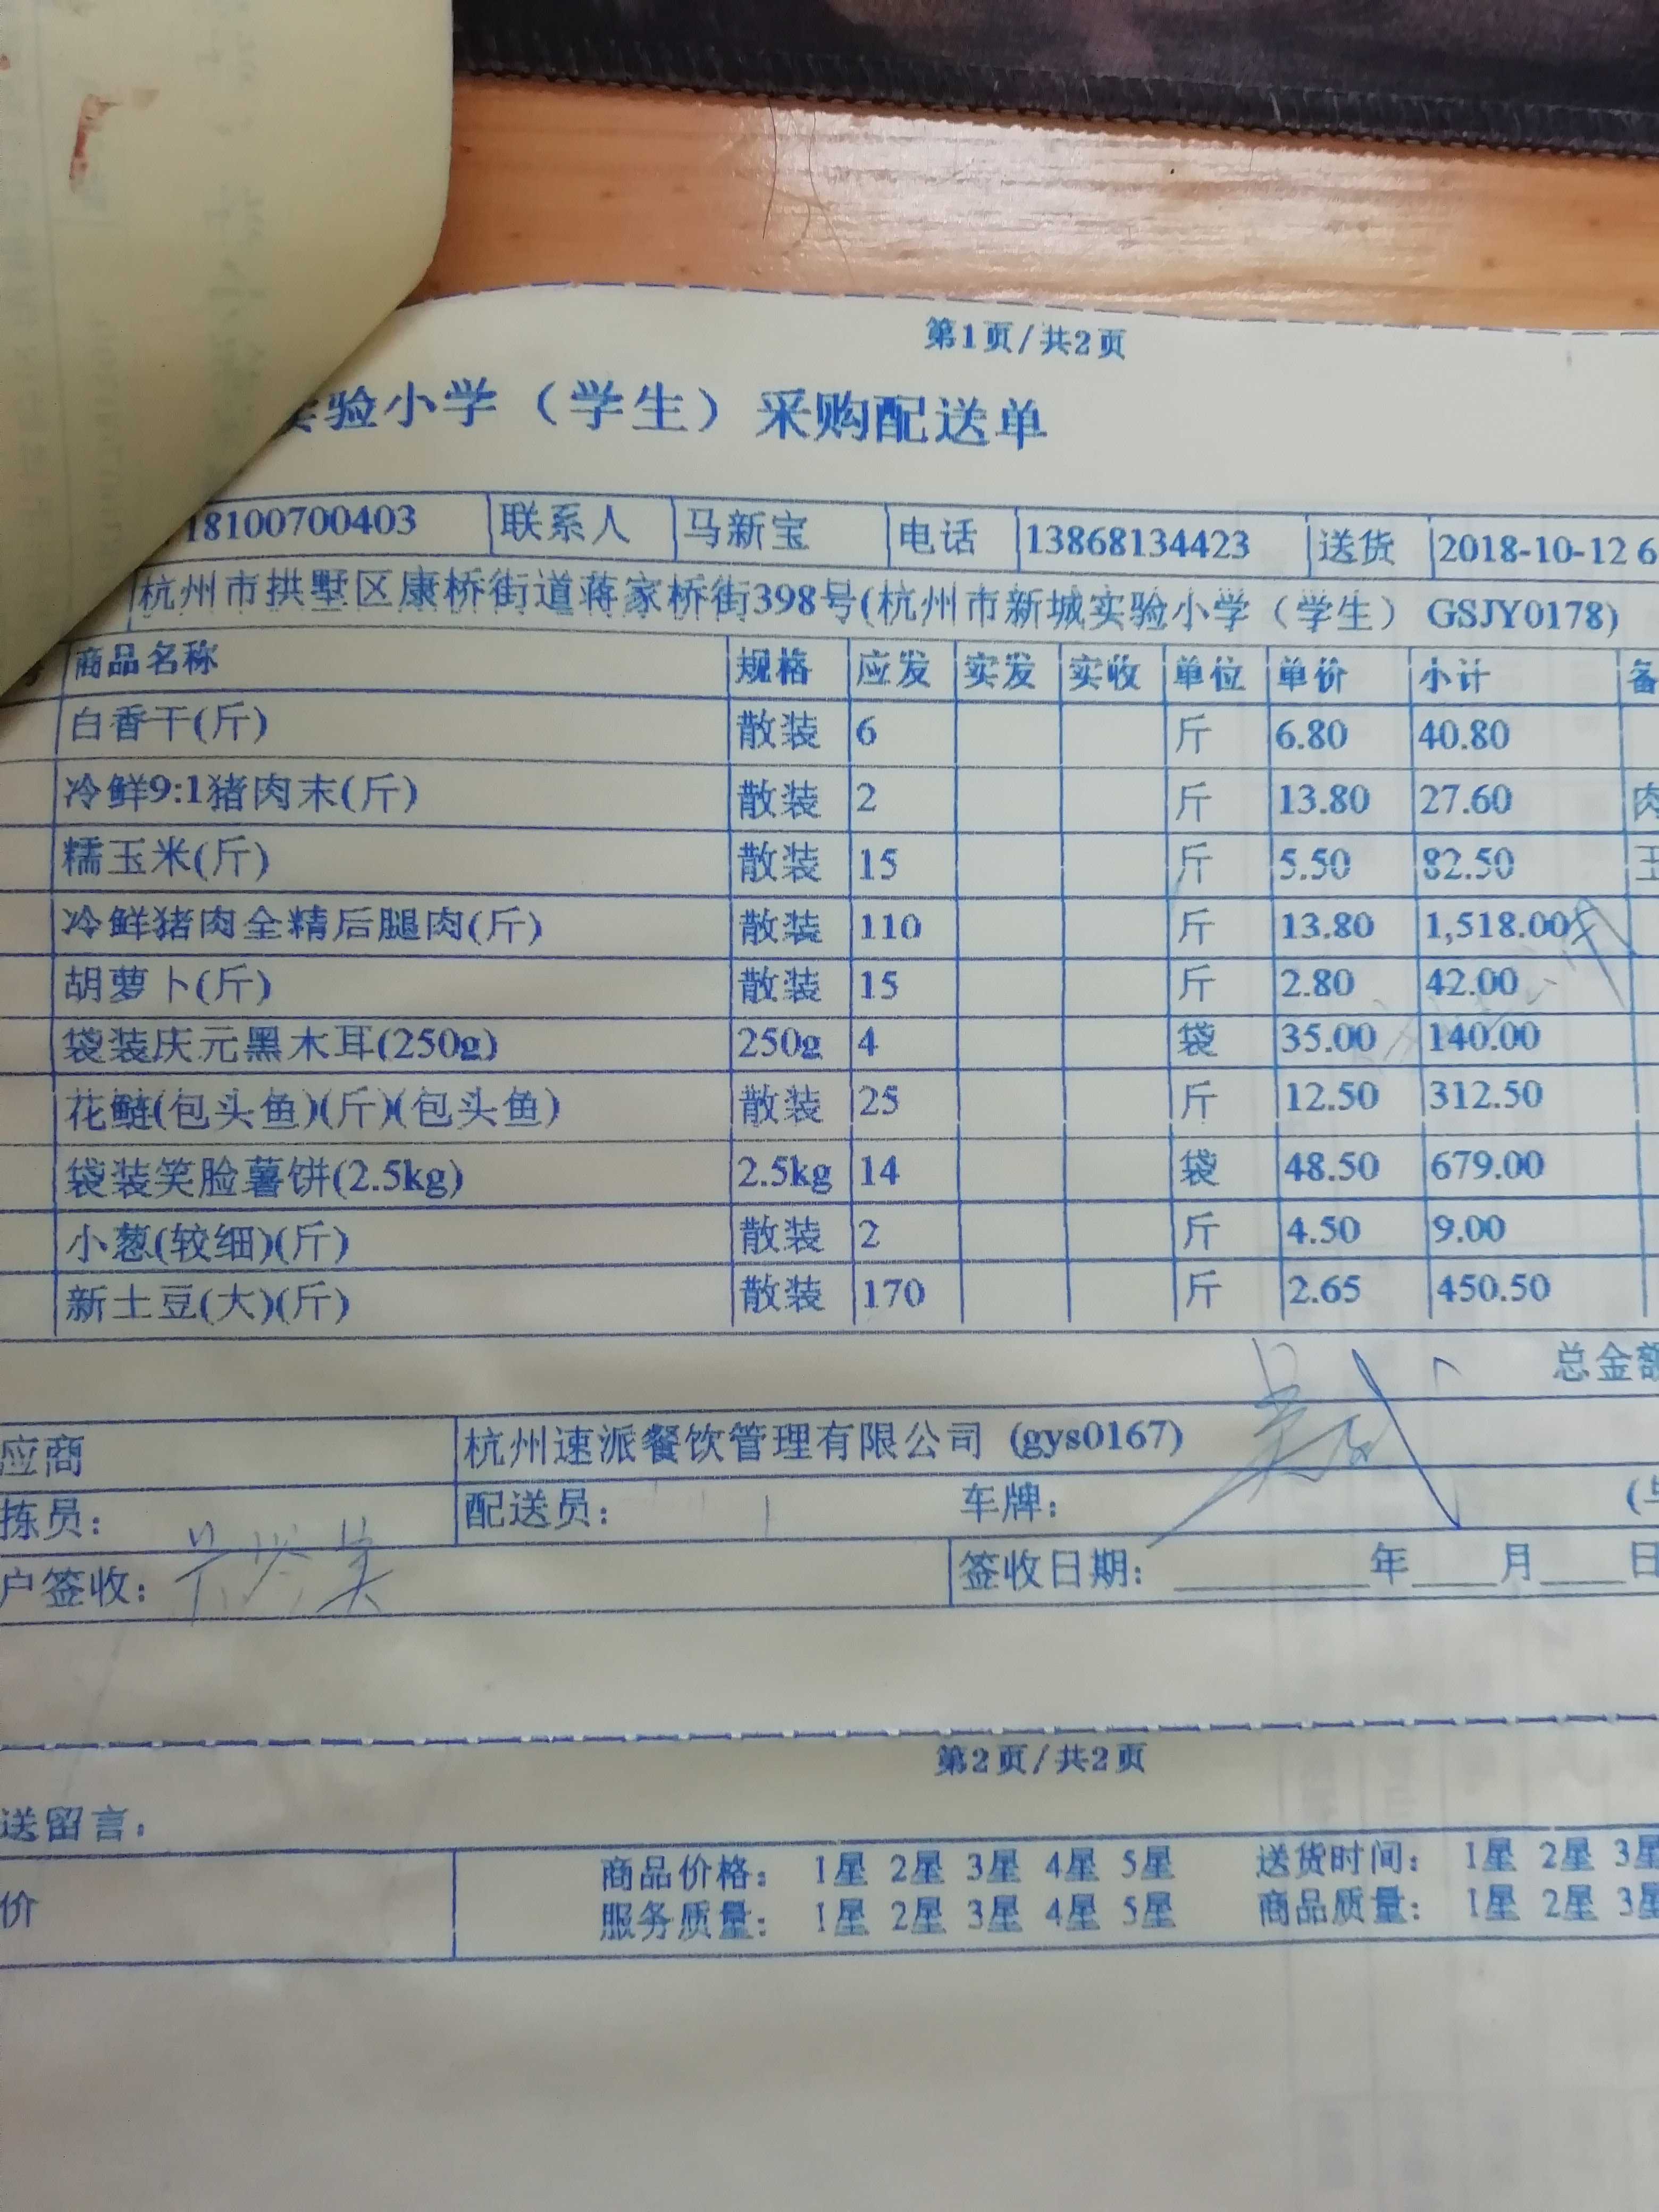 第1页/共2页
验小学（学生）采购配送单
18100700403 联系人 马新宝 电话 13868134423 送货 2018-10-12 6
杭州市拱墅区康桥街道蒋家桥街398号(杭州市新城实验小学（学生） GSJY0178)
商品名称 规格 应发 实发 实收 单位 单价 小计 备
白香干(斤) 散装 6 斤 6.80 40.80
冷鲜9:1猪肉末(斤) 散装 2 斤 13.80 27.60 肉
糯玉米(斤) 散装 15 斤 5.50 82.50 玉
冷鲜猪肉全精后腿肉(斤) 散装 110 斤 13.80 1,518.00
胡萝卜(斤) 散装 15 斤 2.80 42.00
袋装庆元黑木耳(250g) 250g 4 袋 35.00 140.00
花鲢(包头鱼)(斤)(包头鱼) 散装 25 斤 12.50 312.50
袋装笑脸薯饼(2.5kg) 2.5kg 14 袋 48.50 679.00
小葱(较细)(斤) 散装 2 斤 4.50 9.00
新土豆(大)(斤) 散装 170 斤 2.65 450.50
总金额
应商 杭州速派餐饮管理有限公司 (gys0167)
拣员： 配送员： 车牌：
户签收： 签收日期：____年____月____日
第2页/共2页
送留言：
商品价格： 1星 2星 3星 4星 5星 送货时间： 1星 2星 3星
价
服务质量： 1星 2星 3星 4星 5星 商品质量： 1星 2星 3星